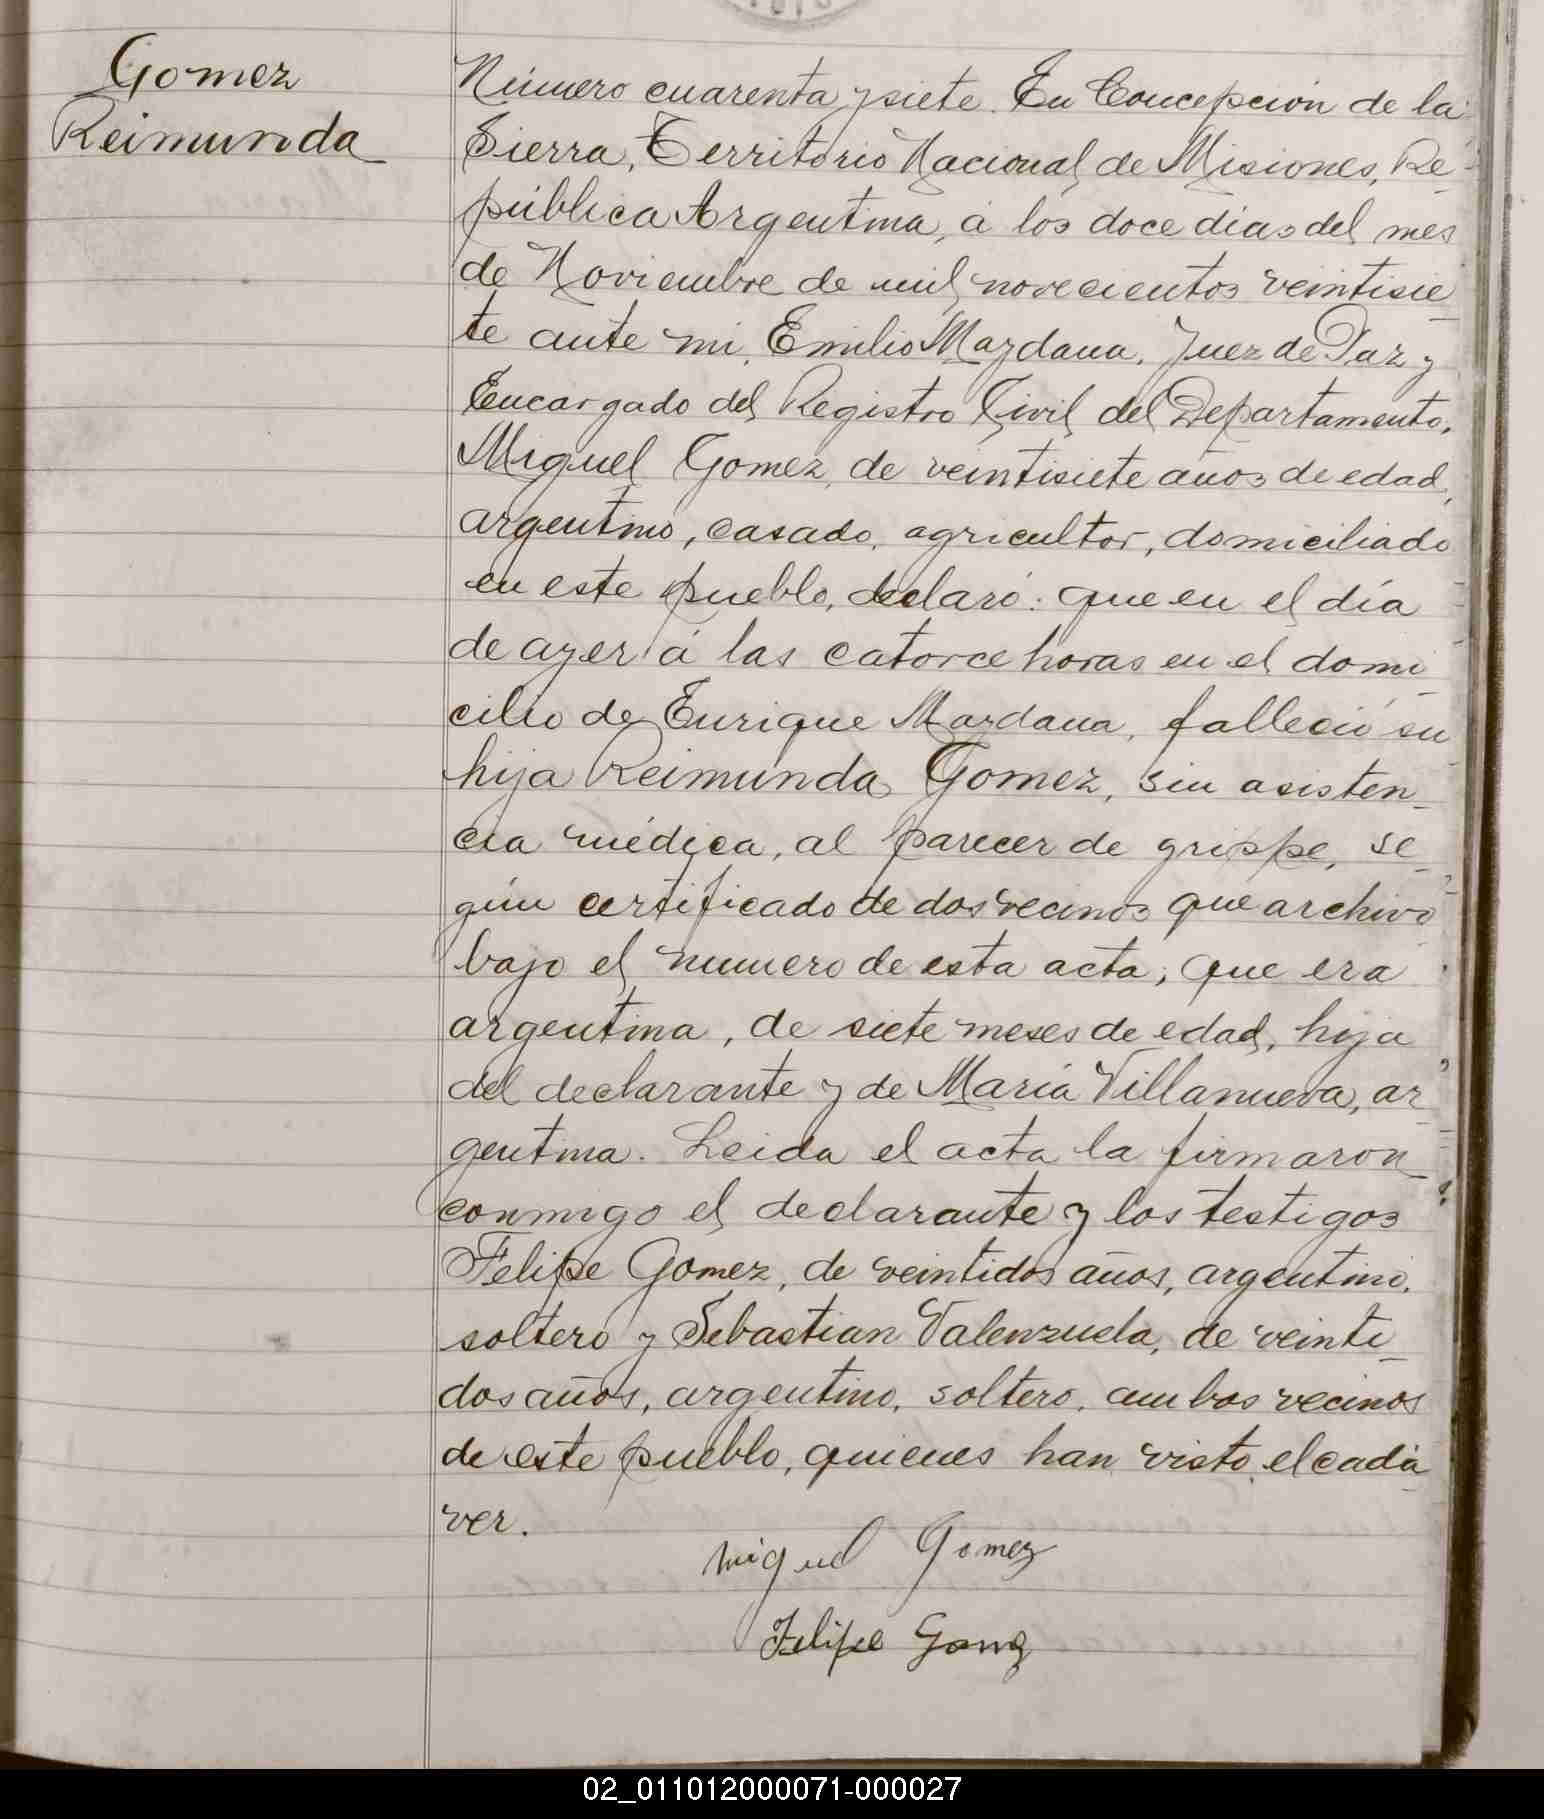 Gomez
Reimunda
Número cuarenta y siete. En Concepción de la
Sierra, Territorio Nacional de Misiones, Re-
pública Argentina, á los doce dias del mes
de Noviembre de mil novecientos veintisie
te ante mi, Emilio Maydana, Juez de Paz y
Encargado del Registro Civil del Departamento,
Miguel Gomez, de veintisiete años de edad,
argentino, casado, agricultor, domiciliado
en este pueblo, declaró: que en el día
de ayer á las catorce horas en el domi
cilio de Enrique Maydana, falleció su
hija Reimunda Gomez, sin asisten
cia médica, al parecer de grippe, se
gún certificado de dos vecinos que archivo
bajo el numero de esta acta; que era
argentina, de siete meses de edad, hija
del declarante y de María Villanueva, ar
gentina. Leida el acta la firmaron
conmigo el declarante y los testigos
Felipe Gomez, de veintidos años, argentino,
soltero y Sebastian Valenzuela, de veinti
dos años, argentino, soltero, ambos vecinos
de este pueblo, quienes han visto el cadá
ver.
Miguel Gomez
Felipe Gomez
02_011012000071-000027